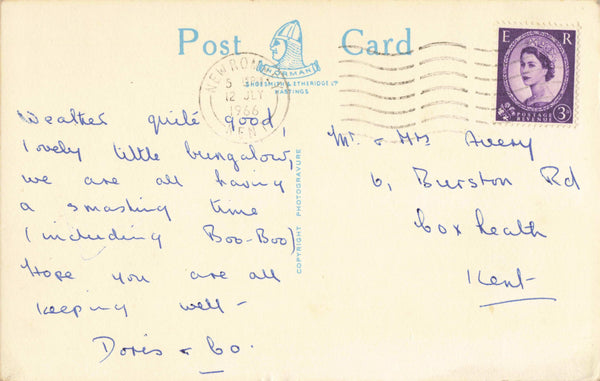 Post Card
NORMAN
SHOESMITH & ETHERIDGE LTD
HASTINGS
NEW ROMNEY
12 JLY
1966
KENT
E R
POSTAGE
REVENUE
3D
Weather quite good,
lovely little bungalow,
we are all having
a smashing time
(including Boo-Boo)
Hope you are all
keeping well -
Doris & Co.
COPYRIGHT PHOTOGRAVURE
Mr & Mrs Avery
6, Burston Rd
Coxheath
Kent